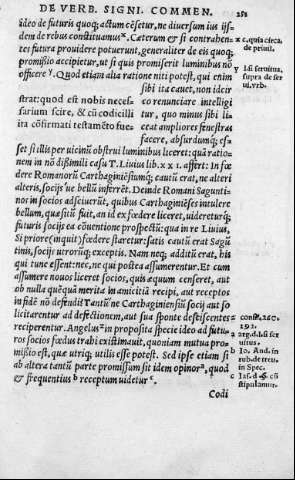 DE VERB. SIGNI. COMMEN.
ideo de futuris quoq; actum cẽsetur, ne diuersum ius ijs-
dem de rebus constituamus
Caterum & si contrahen-
tes futura prouidere potuerunt, generaliter de eis quoq;
promißio accipietur, ut si quis promiserit luminibus nõ
officere y. Quod etiam alia ratione niti potest, qui enim
strat: quod est nobis neces-
sarium scire, & cũ codicilli
ita cõfirmati testamẽto fue-
sibi ita cauet, non ideir
co renunciare intelligi
tur, quo minus sibi li-
ceat ampliores fenestras
facere, absurdumq; es-
set si illis per uicinũ obstrui luminibus liceret: quã ratio
nem in nõ dißimili casu T. Liuius lib. xxi. affert: In fœ
dere Romanorũ Carthaginẽsiumq; cautũ erat, ne alteri
alteris, socijs'ue bellũ inferrẽt. Deinde Romani Sagunti-
nor in socios adsciuerũt, quibus Carthaginẽses intulere
bellum, qua sitũ fuit, an id ex fœdere liceret, uidereturq;
futuris socijs ea cõuentione prospectũ: qua in re Liuius,
Si priore (inquit) fœdere staretur: satis cautũ erat Sagũ
tinis, socijs utrorũq; exceptis. Nam neq; additũ erat, his
qui tunc essent: nec, ne qui postea assumerentur. Et cum
assumere nouos liceret socios, quis æquum censeret, aut
ob nulla quẽquã merita in amicitiã recipi, aut receptos
in fidẽ nõ defendi? Tantũ ne Carthaginensiũ socij aut so
licitarentur ad defectionem, aut sua sponte desciscentes
reciperentur. Angelus in proposita specie ideo ad futu-
ros socios fœdus trahi existimauit, quoniam mutua pro-
mißio est, quæ utriq; utilis esse potest. Sed ipse etiam si
ab altera tantũ parte promissum sit idem opinor a, quod
& frequentius b receptum uidetur c.
Codi
251
x c. quia circa.
de priuil.
y l. si seruitus,
supra de ser
ui. vrb.
z cons. 280.
292.
a arg. d. l. si ser
uitus.
b Io. And. in
rub. de treu.
in Spec.
c Ias. d. §. cũ
stipulamur.